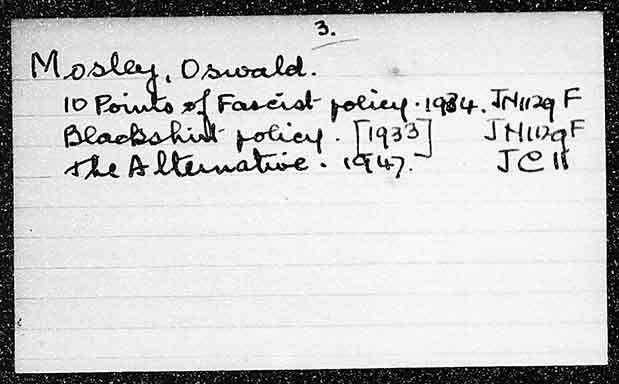 3.
Mosley, Oswald.
10 Points of Fascist policy. 1934. JN1129 F
Blackshirt policy. [1933] JN1129F
The Alternative. 1947. JC11